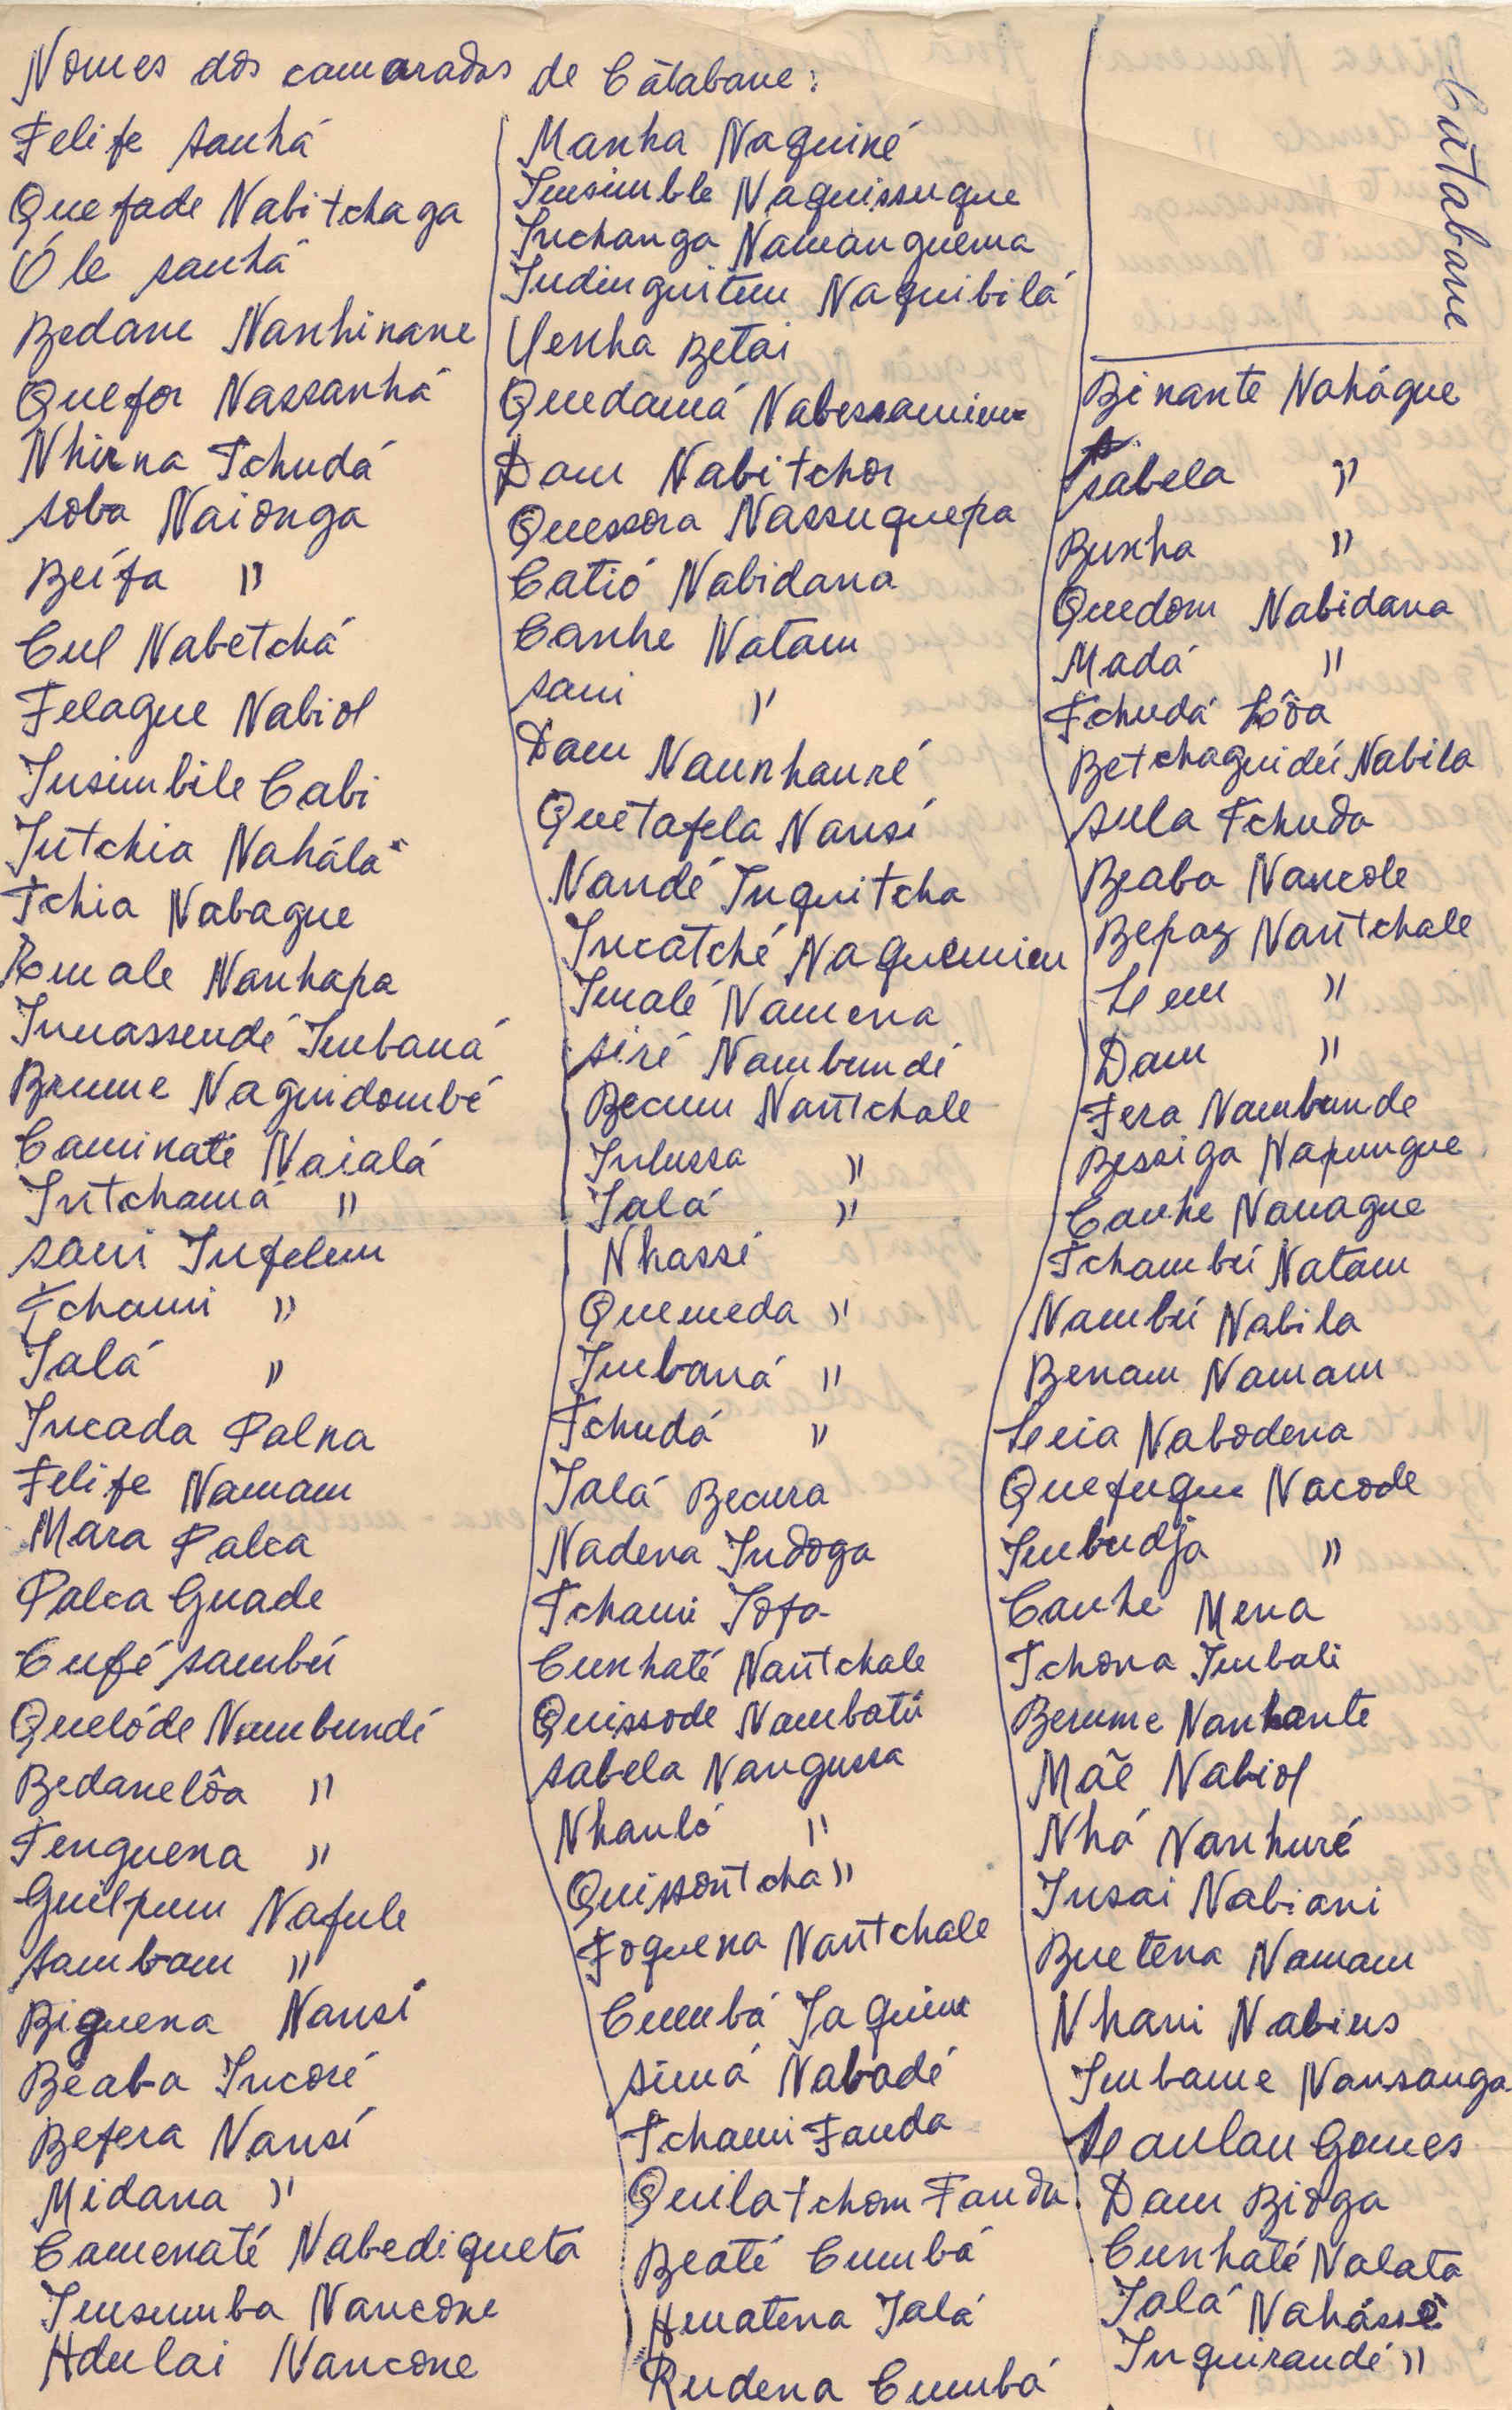 Nomes dos camaradas de Catabane:
Felife Sanhá
Quefade Nabitchaga
Óle Sanhá
Bedam Nanhinane
Quefor Nassanhá
Nhinna Tchudá
Soba Naionga
Beífa "
Cul Nabetchá
Felague Nabiol
Insimbile Cabi
Intchia Nahála
Tchia Nabague
Nanhapa
Inmassendé Imbaná
Naguidombé
Caminaté Naialá
Intchamá "
Sami Infelem
Tchami "
Ialá "
Incada Palna
Felife Namam
Mara Palca
Palca Guade
Cufé Sambú
Quelóde Nambundé
Bedanelôa "
Fenguena "
Guilpum Nafule
Sambam "
Biguena Nansí
Beaba Incoré
Befera Nansí
Midana "
Camenaté Nabediqueta
Imsumba Nancone
Adulai Nancone
Manha Naguiné
Imsimble Naguissugue
Inchanga Namanguema
Indinguitim Naguibilá
Uenha Betai
Quedamá
Dam Nabitchor
Quessora Nassuquepa
Catió Nabidana
Canhe Natam
Sami "
Dam Namnhamré
Quetafela Nansí
Nandé Inquitcha
Incatché
Imalé Namena
Siré Nambundé
Becum Nantchale
Inlussa "
Ialá "
Nhassé
Quemeda "
Imbaná "
Tchudá "
Ialá Becura
Nadena Indoga
Tchami Iofa
Cunhaté Nantchale
Quissode Nambatú
Sabela Nangussa
Nhanló "
Quissontcha "
Foquena Nantchale
Cumbá Iaquim
Simá Nabadé
Tchami Fanda
Quilatchom Fanda
Beaté Cumbá
Amatena Ialá
Rudena Cumbá
Catabane
Binante Naháque
Sabela "
Bunha "
Quedom Nabidana
Madá "
Tchudá Lôa
Betchaguidú Nabila
Sula Tchuda
Beaba Nancole
Bepaz Nantchale
Lem "
Dam "
Fera Nambunde
Bessiga Napungue
Canhe Nanague
Tchambú Natam
Nambú Nabila
Benam Namam
Leia Nabodena
Quefugue Nacode
Imbudja "
Canhe Mena
Tchona Imbali
Berume Nanhante
Mãe Nabiol
Nhá Nanhuré
Insai Nabiani
Buetena Namam
Nhani Nabius
Imbame Nansanga
Leanlau Gomes
Dam Bioga
Cunhaté Nalata
Ialá Nahássé
Inquirandé "